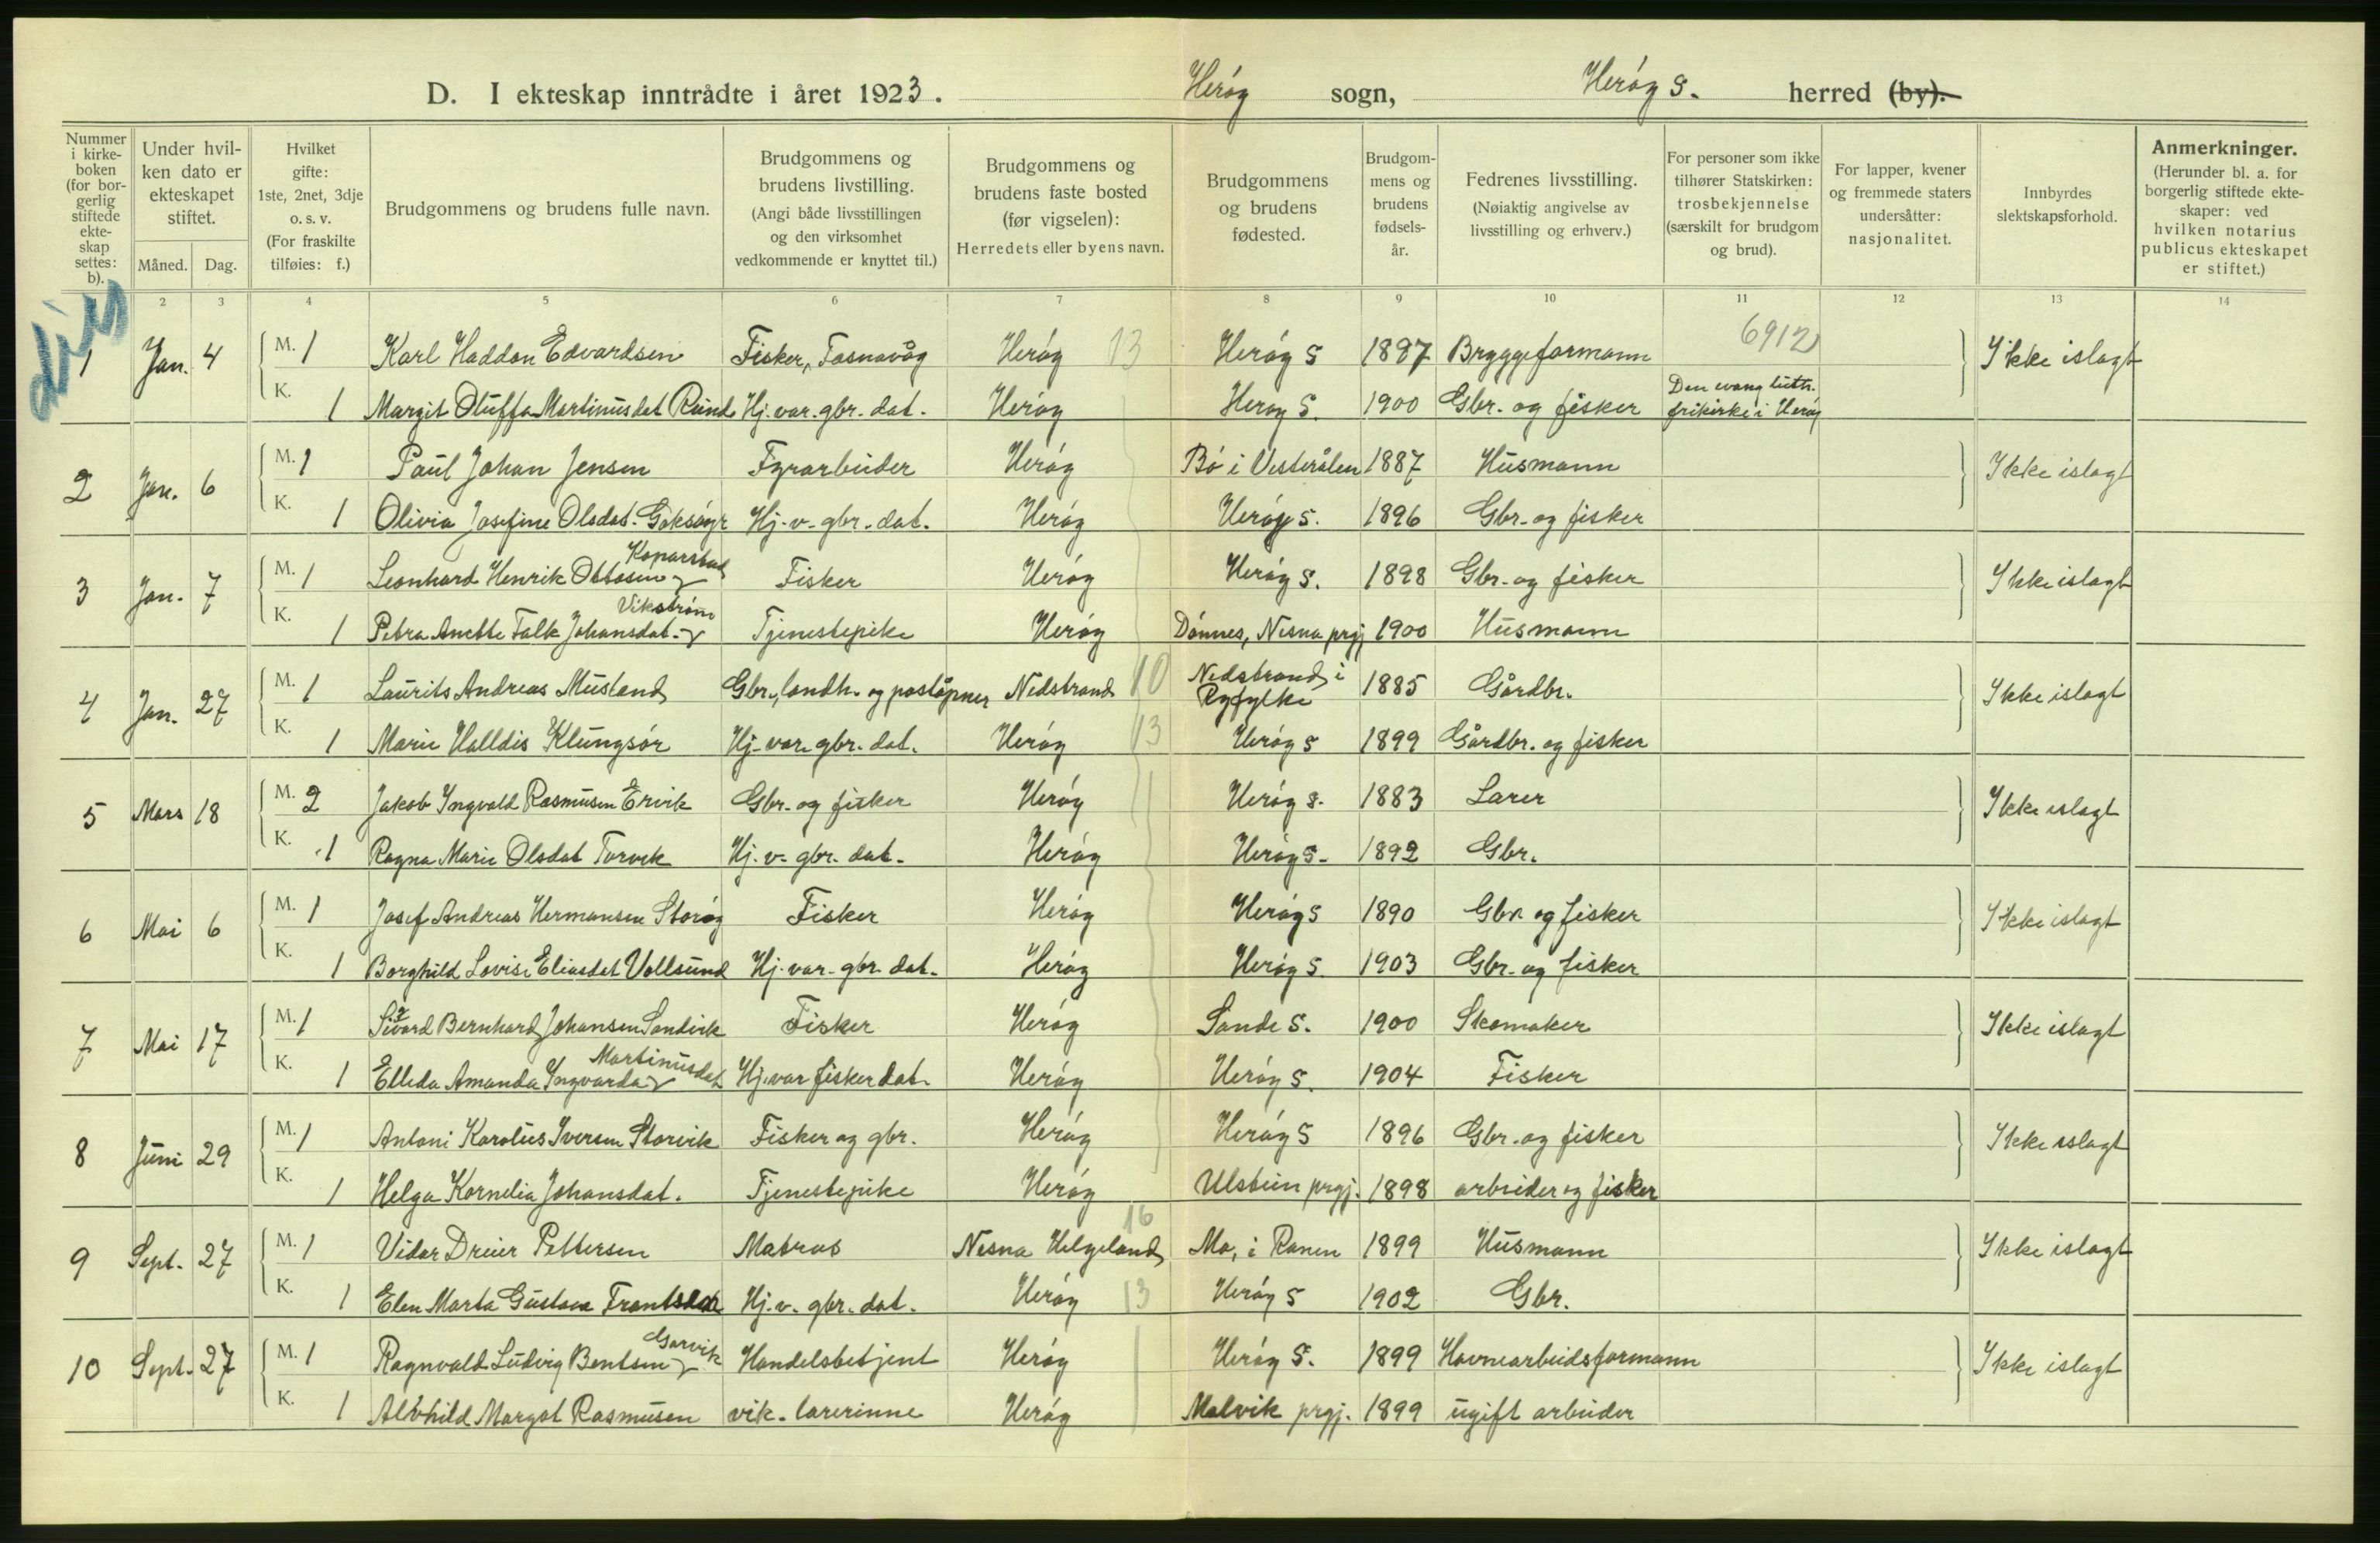 D. I ekteskap inntrådte i året 1923. Herøy sogn, Herøy S. herred (by).
Nummer i kirkeboken (for borgerlig stiftede ekteskap settes: b).
Under hvilken dato er ekteskapet stiftet.
Måned. Dag.
Hvilket gifte: 1ste, 2net, 3dje o. s. v. (For fraskilte tilføies: f.)
Brudgommens og brudens fulle navn.
Brudgommens og brudens livstilling. (Angi både livsstillingen og den virksomhet vedkommende er knyttet til.)
Brudgommens og brudens faste bosted (før vigselen): Herredets eller byens navn.
Brudgommens og brudens fødested.
Brudgommens og brudens fødselsår.
Fedrenes livsstilling. (Nøiaktig angivelse av livsstilling og erhverv.)
For personer som ikke tilhører Statskirken: trosbekjennelse (særskilt for brudgom og brud).
For lapper, kvener og fremmede staters undersåtter: nasjonalitet.
Innbyrdes slektskapsforhold.
Anmerkninger. (Herunder bl. a. for borgerlig stiftede ekteskaper: ved hvilken notarius publicus ekteskapet er stiftet.)
2 3 4 5 6 7 8 9 10 11 12 13 14
1 Jan. 4 M. 1 Karl Haddon Edvardsen Fisker, Fosnavåg Herøy 13 Herøy S 1897 Bryggeformann 6912 Ikke islagt
K. 1 Margit Oluffa Martinusdat Runde Hj. var. gbr. dat. Herøy Herøy S. 1900 Gbr. og fisker Den evang luth. frikirke i Herøy
2 Jan. 6 M. 1 Paul Johan Jensen Fyrarbeider Herøy Bø i Vesterålen 1887 Husmann Ikke islagt
K. 1 Olivia Josefine Olsdat. Goksøyr Hj. v. gbr. dat. Herøy Herøy S. 1896 Gbr. og fisker
3 Jan. 7 M. 1 Leonhard Henrik Ottosen Koparstad Fisker Herøy Herøy S. 1898 Gbr. og fisker Ikke islagt
K. 1 Petra Anette Falk Johansdat. Vikstrøm Tjenestepike Herøy Dønnes, Nesna prgj 1900 Husmann
4 Jan. 27 M. 1 Laurits Andreas Musland Gbr., landh. og poståpner Nedstrand 10 Nedstrand i Ryfylke 1885 Gårdbr. Ikke islagt
K. 1 Marie Halldis Klungsør Hj. var. gbr. dat. Herøy 13 Herøy S 1899 Gårdbr. og fisker
5 Mars 18 M. 2 Jakob Ingvald Rasmusen Ervik Gbr. og fisker Herøy Herøy S. 1883 Lærer Ikke islagt
K. 1 Ragna Marie Olsdat Torvik Hj. v. gbr. dat. Herøy Herøy S. 1892 Gbr.
6 Mai 6 M. 1 Josef Andreas Hermansen Storøy Fisker Herøy Herøy S 1890 Gbr. og fisker Ikke islagt
K. 1 Borghild Lovise Eliasdat Vollsund Hj. var. gbr. dat. Herøy Herøy S. 1903 Gbr. og fisker
7 Mai 17 M. 1 Sivard Bernhard Johansen Sandvik Fisker Herøy Sande S. 1900 Skomaker Ikke islagt
K. 1 Ellida Amanda Ingvarda Martinusdat Hj. var fisker dat. Herøy Herøy S. 1904 Fisker
8 Juni 29 M. 1 Antoni Karolus Iversen Storvik Fisker og gbr. Herøy Herøy S 1896 Gbr. og fisker Ikke islagt
K. 1 Helga Kornelia Johansdat. Tjenestepike Herøy Ulstein prgj. 1898 arbeider og fisker
9 Sept. 27 M. 1 Vidar Dreier Pettersen Matros Nesna Helgeland 16 Mo, i Ranen 1899 Husmann Ikke islagt
K. 1 Elen Marta Gustava Frantsdat Hj. v. gbr. dat. Herøy 13 Herøy S 1902 Gbr.
10 Sept. 27 M. 1 Ragnvald Ludvig Bentsen Garvik Handelsbetjent Herøy Herøy S. 1899 Havnearbeidsformann Ikke islagt
K. 1 Alvhild Margot Rasmusen vik. lærerinne Herøy Malvik prgj. 1899 ugift arbeider